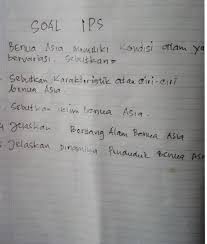 SOAL IPS
Benua Asia memiliki kondisi alam ya
bervariasi. Sebutkan
Sebutkan karakteristik atau ciri-ciri
benua Asia.
Sebutkan iklim benua Asia.
4 Jelaskan Bentang Alam Benua Asia
5 Jelaskan Dinamika Penduduk Benua Asi